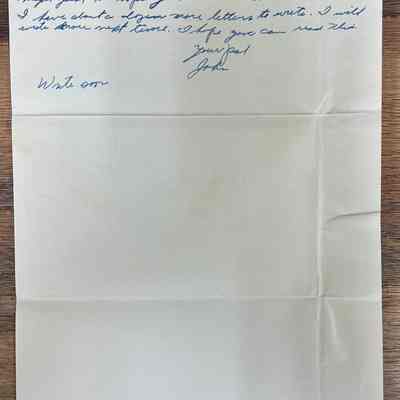 I have about a dozen more letters to write. I will
write more next time. I hope you can read this
Your pal
John
Write soon